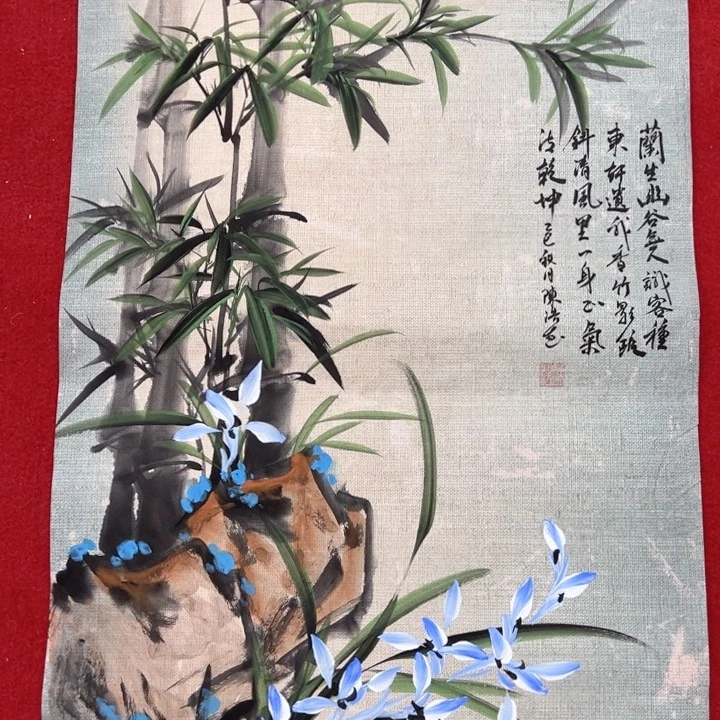 蘭生幽谷無人識客種
東軒遺我香竹影
斜清風里一身正氣
清乾坤 乙巳秋月陳浩